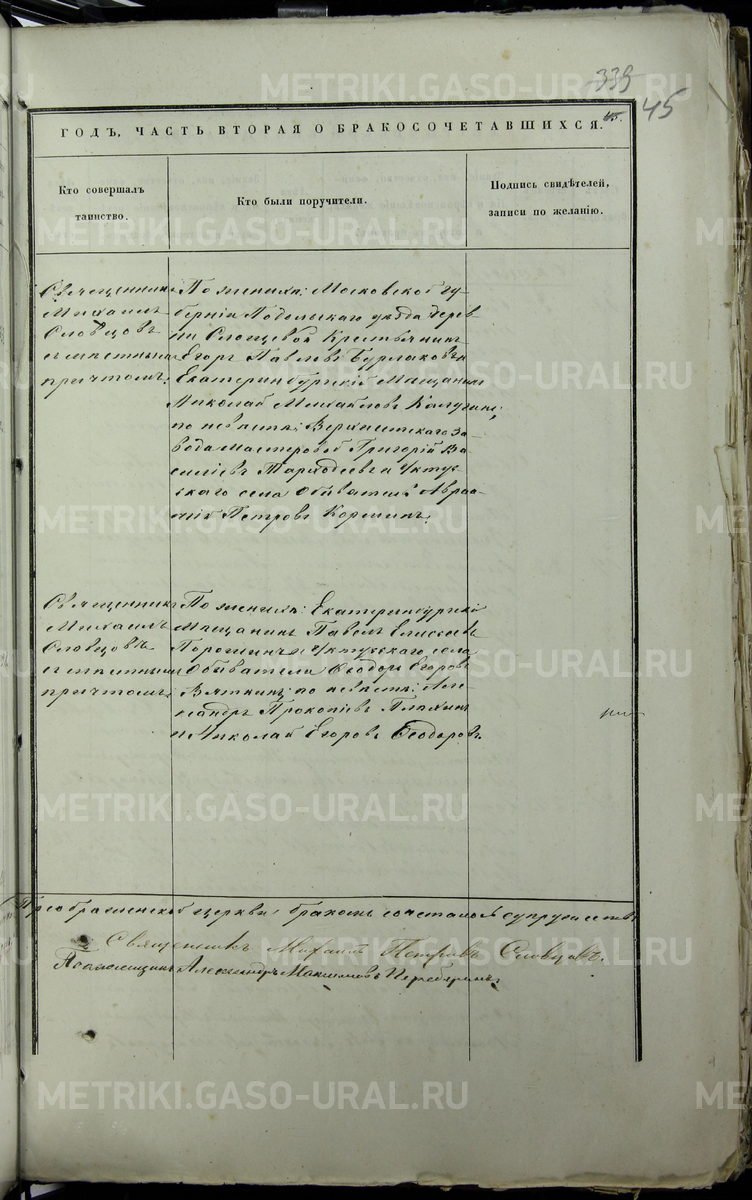 339
45
45.
ГОДЪ, ЧАСТЬ ВТОРАЯ О БРАКОСОЧЕТАВШИХСЯ.
Кто совершалъ
таинство.
Кто были поручители.
Подпись свидѣтелей,
записи по желанію.
Священникъ
Михаилъ
Словцовъ
съ местнымъ
причтомъ.
По женихѣ: Московской гу-
берніи Подольскаго уѣзда дерев-
ни Крестьянинъ
Егоръ Павловъ Бурлаковъ и
Екатеринбургскій Мѣщанинъ
Николай Михайловъ Калугинъ;
по невестѣ: Верхисетскаго За-
вода мастеровой Григорій Ва-
сильевъ и Уктус-
скаго села Обыватель Авраа-
мій Петровъ
Священникъ
Михаилъ
Словцовъ
съ местнымъ
причтомъ.
По женихѣ: Екатеринбургскій
Мѣщанинъ Павелъ Елисеевъ
Порошинъ и Уктусскаго села
Обыватель Ѳеодоръ Егоровъ
Вяткинъ; по невестѣ: Алек-
сандръ Прокопіевъ
и Николай Егоровъ Ѳеодоровъ.
Преображенской церкви, бракомъ сочеталося супружествъ
Священникъ Михаилъ Петровъ Словцовъ.
Александръ Максимовъ
METRIKI.GASO-URAL.RU